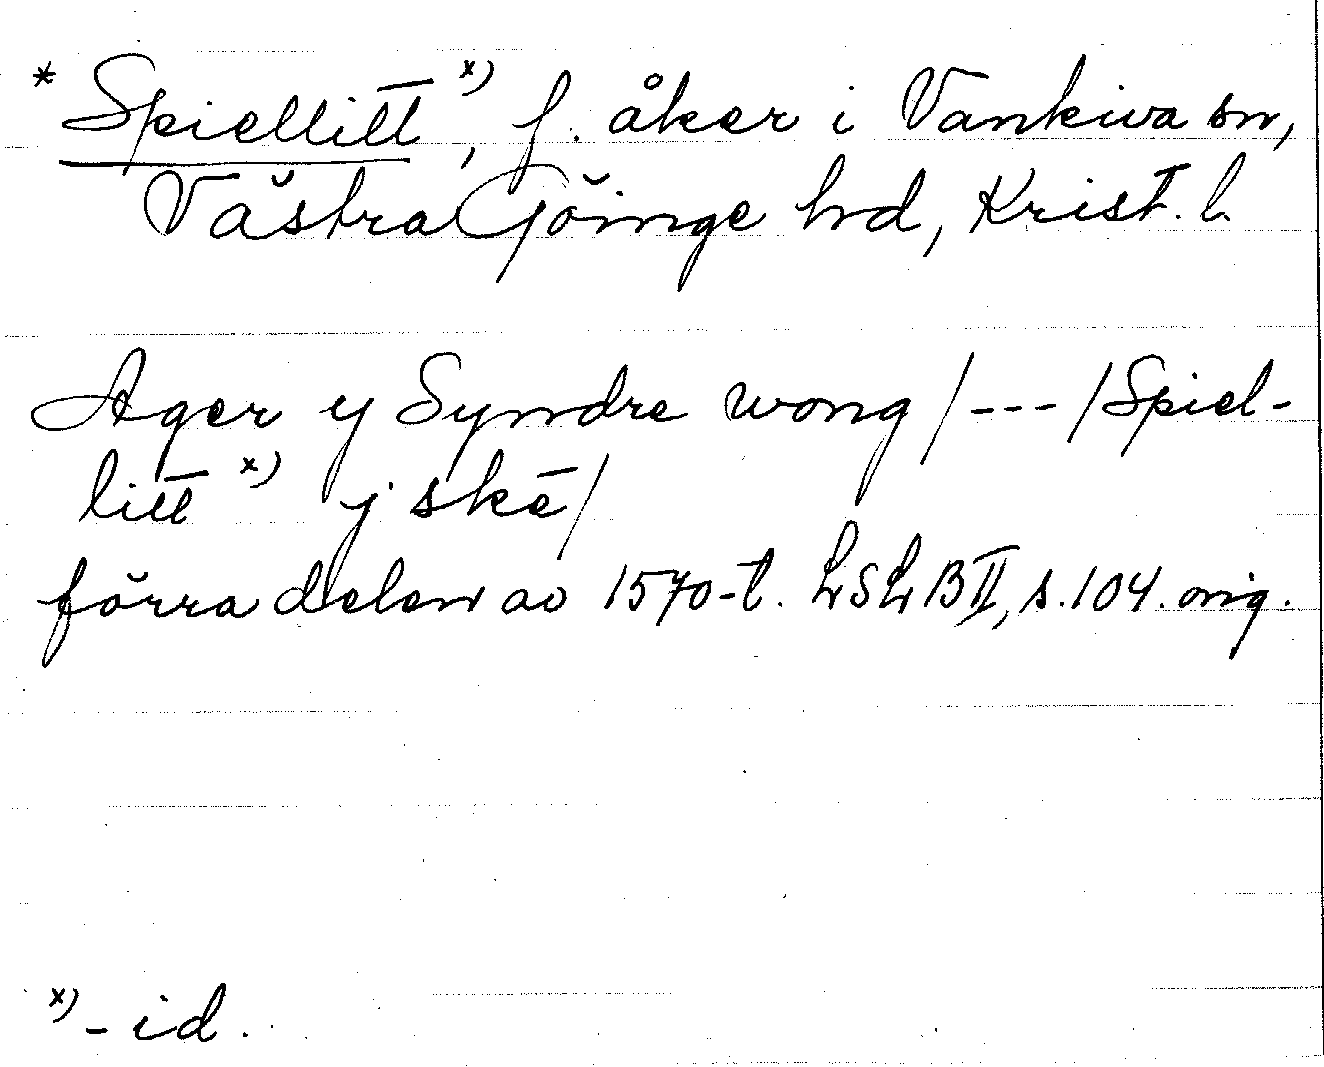 * Spiellitt x), f. åker i Vankiva sn,
Västra Göinge hd, Krist. l.
Ager y Syndre wong /---/ Spiel-
litt x) j skē /
förra delen av 1570-t. LSLB II, s. 104. orig.
x) - id.